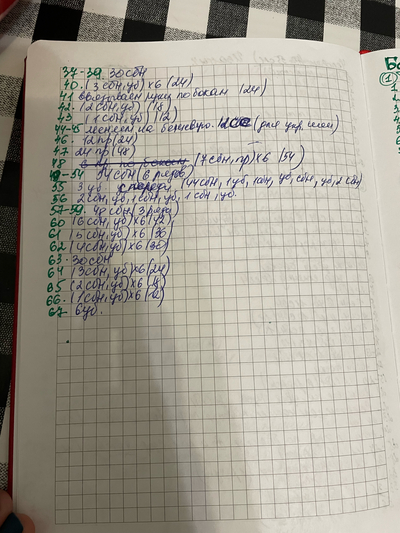 37-39. 30 сбн
40. (3 сбн, уб) x6 (24)
41 ввязываем руки по бокам (24)
42. (2 сбн, уб) (18)
43 (1 сбн, уб) (12)
44-45 меняем на бежевую. 12 СБ (для укр. шеи)
46. 12 пр (24)
47 24 пр (48)
48 (7 сбн, пр) x6 (54)
49-54 54 сбн (6 рядов)
55 3 уб спереди (44 сбн, 1 уб, 1 сбн, уб, сбн, уб, 2 сбн)
56 2 сбн, уб, 1 сбн, уб, 1 сбн, уб.
57-59. 48 сбн (3 ряда)
60 (6 сбн, уб) x6 (42)
61 (5 сбн, уб) x6 (36
62 (4 сбн, уб) x6 (30)
63. 30 сбн
64 (3 сбн, уб) x6 (24)
65 (2 сбн, уб) x6 (18)
66. (1 сбн, уб) x6 (12)
67 6 уб.
Бо
(1)
1
2
3
4
5